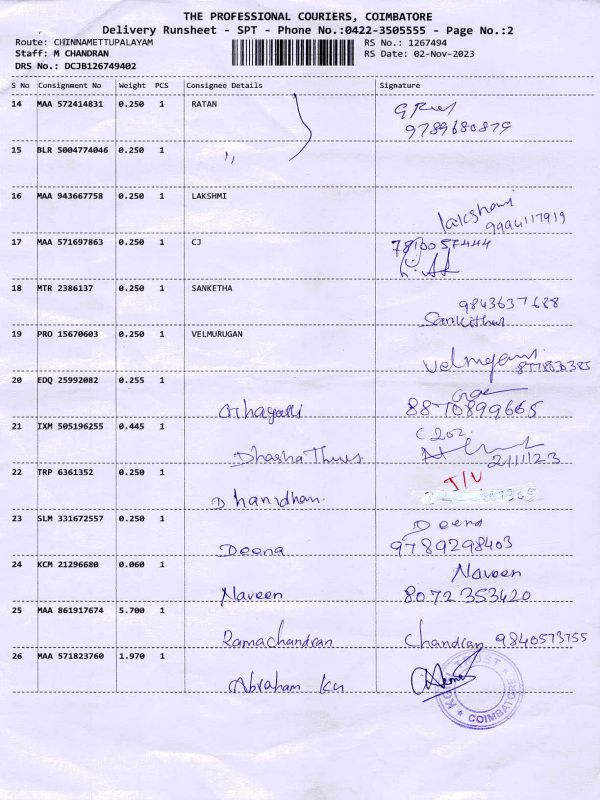 THE PROFESSIONAL COURIERS, COIMBATORE
Delivery Runsheet - SPT - Phone No.:0422-3505555 - Page No.:2
Route: CHINNAMETTUPALAYAM RS No.: 1267494
Staff: M CHANDRAN RS Date: 02-Nov-2023
DRS No.: DCJB126749402
S No Consignment No Weight PCS Consignee Details Signature
14 MAA 572414831 0.250 1 RATAN
9789680879
15 BLR 5004774046 0.250 1 "
16 MAA 943667758 0.250 1 LAKSHMI
lakshmi
9994117919
17 MAA 571697863 0.250 1 CJ
18 MTR 2386137 0.250 1 SANKETHA
9843637688
19 PRO 15670603 0.250 1 VELMURUGAN
20 EDQ 25992082 0.255 1
8870899665
21 IXM 505196255 0.445 1
2/11/23
22 TRP 6361352 0.250 1 J/V
Dhanidhan.
23 SLM 331672557 0.250 1 Deena
Deena 9789298403
24 KCM 21296680 0.060 1 Naveen
Naveen 8072353420
25 MAA 861917674 5.700 1
Ramachandran Chandran 9840573755
26 MAA 571823760 1.970 1
Abraham
COIMBATORE